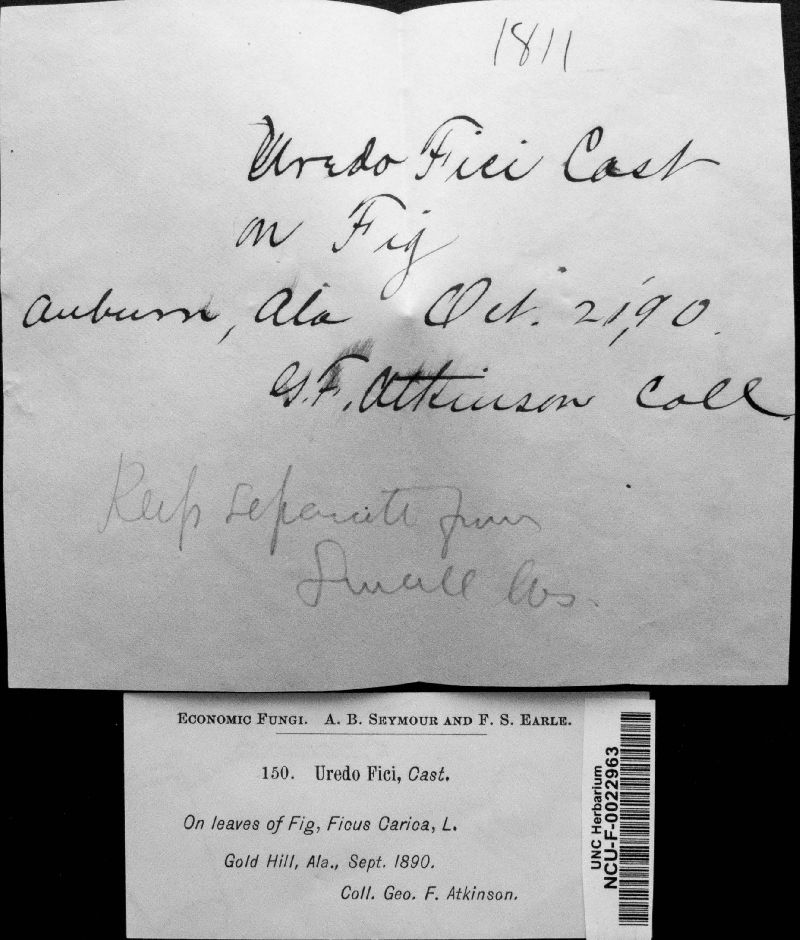 1811
Uredo Fici Cast
on Fig
Auburn, Ala Oct. 21, 90.
G. F. Atkinson Coll.
Keep separate from
Small lvs.
ECONOMIC FUNGI. A. B. SEYMOUR AND F. S. EARLE.
150. Uredo Fici, Cast.
On leaves of Fig, Ficus Carica, L.
Gold Hill, Ala., Sept. 1890.
Coll. Geo. F. Atkinson.
UNC Herbarium
NCU-F-0022963